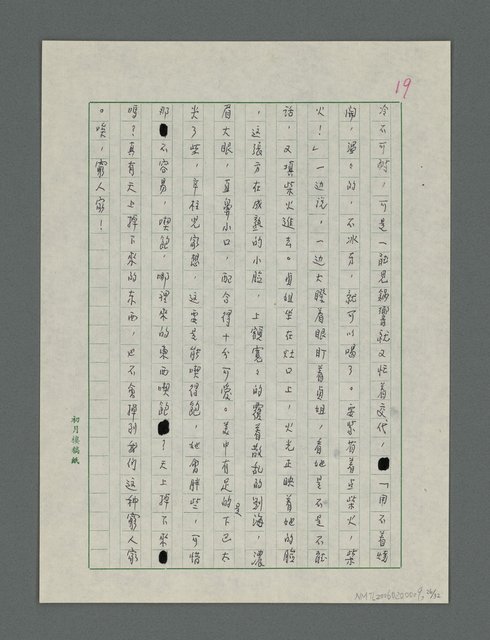 19
冷不可耐,可是一聽見鍋響就又忙着交代,「用不着燒
開,溫的,不冰牙,就可以喝了。要紫省着点柴火,柴
火!」一边說,一边大瞪着眼盯着貞姐,看她是不是不聽
話,又填柴火進去。貞姐坐在灶口上,火光正映着她的臉
,這張方在成熟的小臉,上額寬的覆着散乱的别海,濃
眉大眼,直鼻小口,配合得十分可愛。美中有足的是下巴太
尖了些,辛往兒家想,这要是能喫得飽,她會胖些,可惜
那不容易,喫飽,哪裡來的東西喫飽?天上掉下來
嗎?真有天上掉下來的东西,也不會掉到我们这种窮人家
。唉,窮人家!
初月樓稿紙